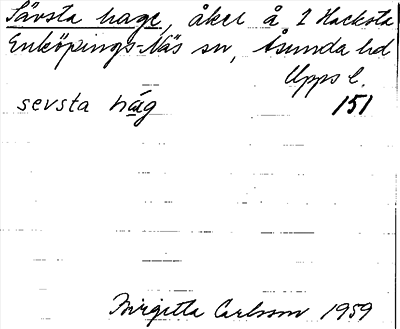 Sävsta hage, åker å 2 Hacksta
Enköpings-Näs sn, Åsunda hd
Upps l.
sevsta hág 151
Birgitta Carlsson 1959